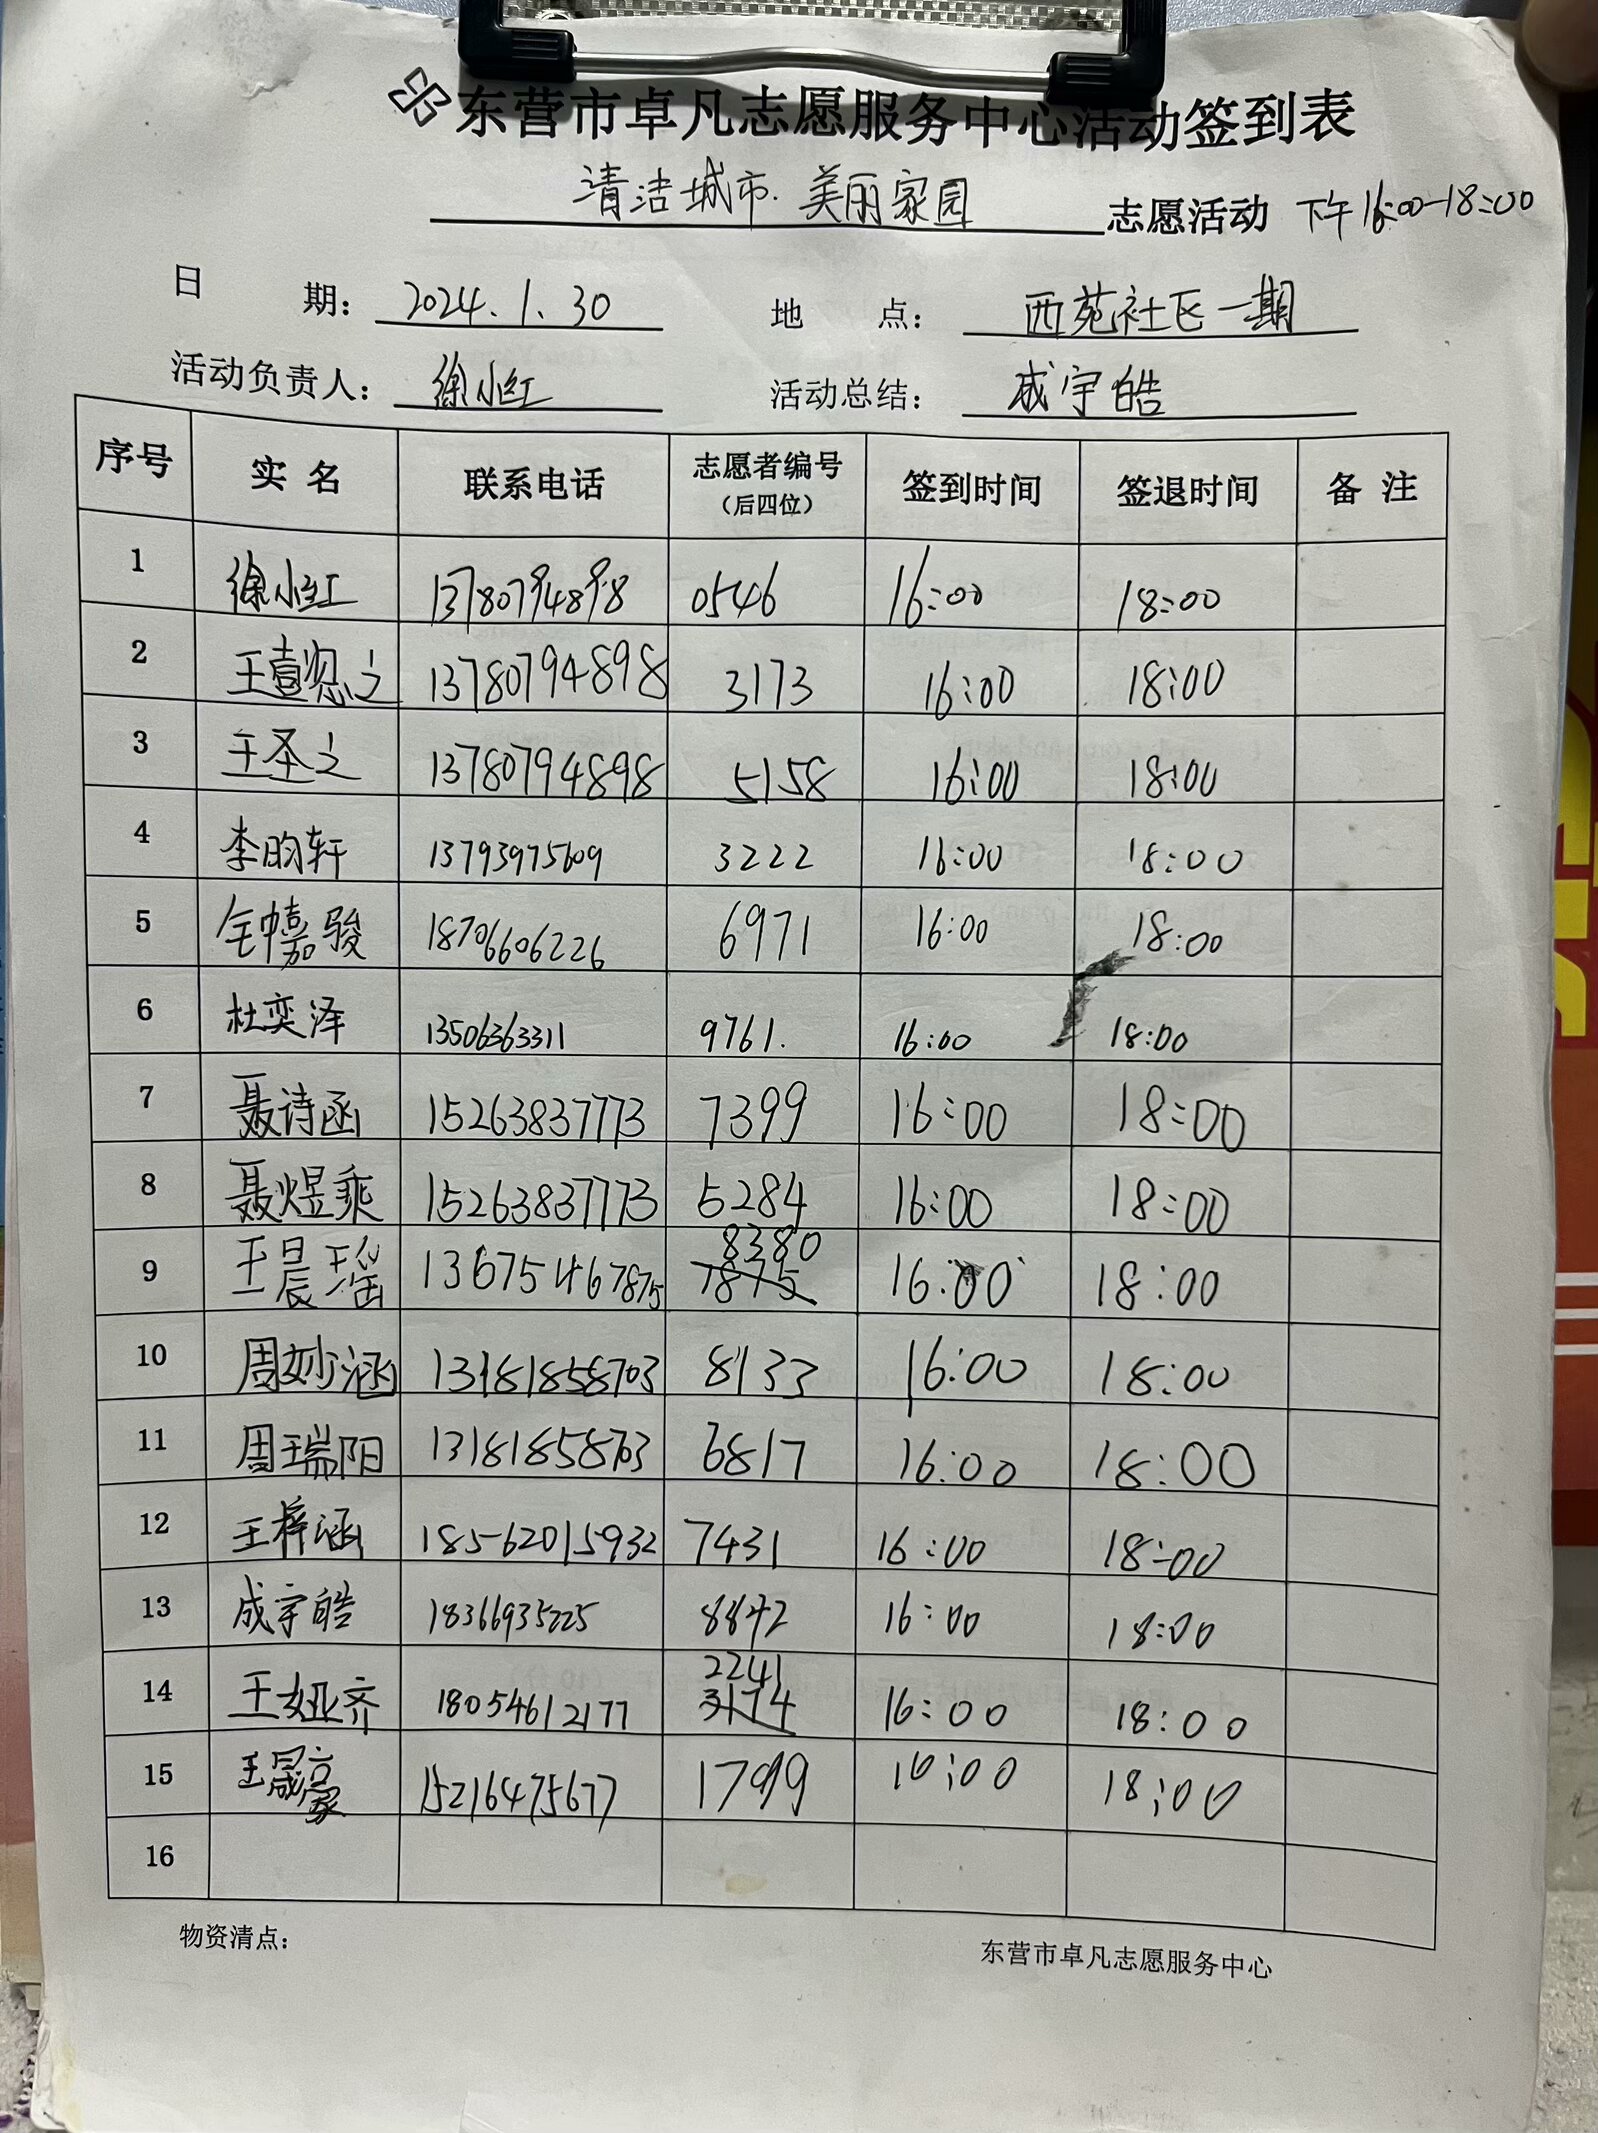 东营市卓凡志愿服务中心活动签到表
清洁城市·美丽家园 志愿活动 下午16:00-18:00
日 期: 2024.1.30 地 点: 西苑社区一期
活动负责人: 徐小红 活动总结: 成宇皓
序号 实名 联系电话 志愿者编号(后四位) 签到时间 签退时间 备注
1 徐小红 13780794898 0546 16:00 18:00
2 王壹恕之 13780794898 3173 16:00 18:00
3 王圣之 13780794898 5158 16:00 18:00
4 李昀轩 13793975609 3222 16:00 18:00
5 嘉骏 18706606226 6971 16:00 18:00
6 杜奕泽 13506363311 9761. 16:00 18:00
7 聂诗函 15263837773 7399 16:00 18:00
8 聂煜乘 15263837773 5284 16:00 18:00
9 王晨瑶 13675467875 8380 7875 16:00 18:00
10 周妙涵 13181858703 8133 16:00 18:00
11 周瑞阳 13181858703 6817 16:00 18:00
12 王梓涵 18562015932 7431 16:00 18:00
13 成宇皓 18366935225 8842 16:00 18:00
14 王娅齐 18054612177 2241 3174 16:00 18:00
15 王晟豪 15216475677 1799 16:00 18:00
16
物资清点:
东营市卓凡志愿服务中心